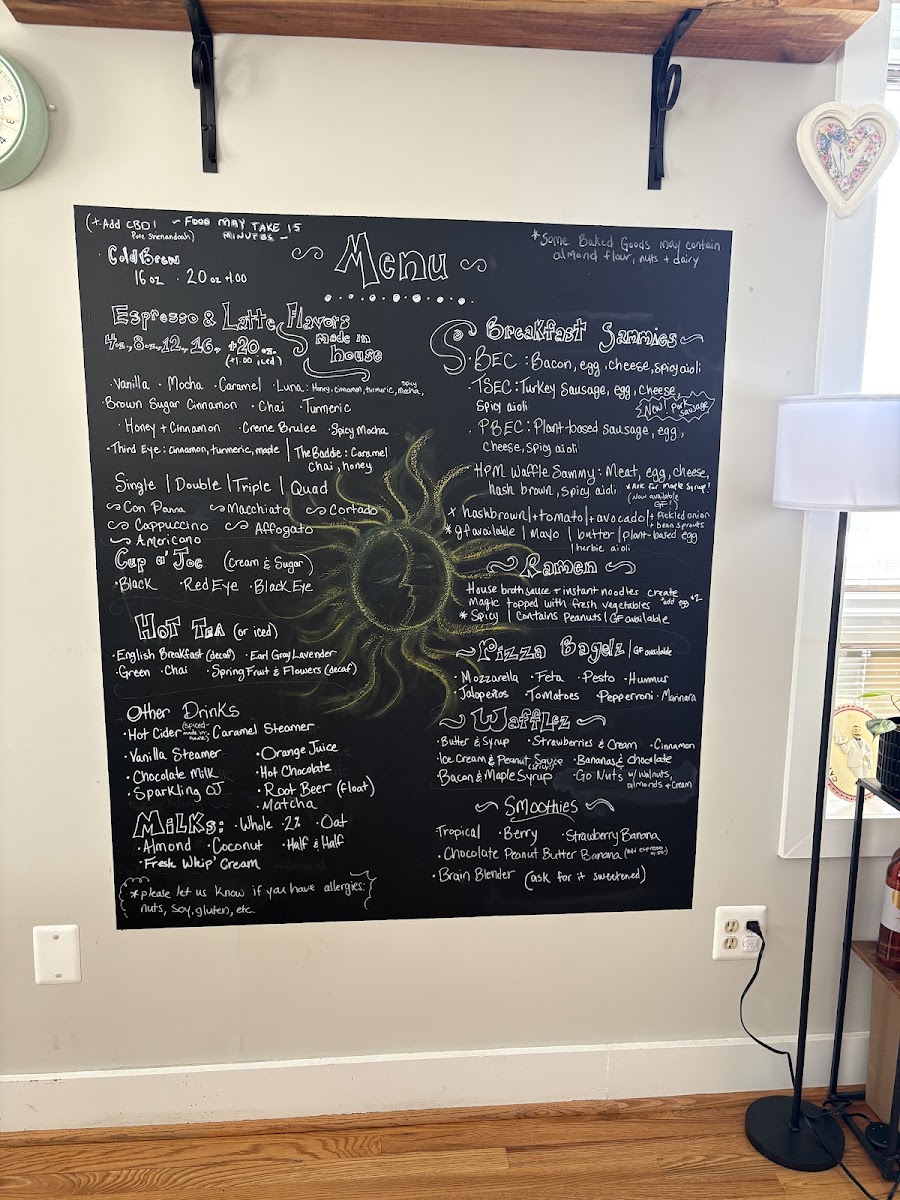 (+Add CBD!
Pure Shenandoah)
~ FOOD MAY TAKE 15
MINUTES -
Menu
*Some Baked Goods may contain
almond flour, nuts + dairy
· Cold Brew
16oz · 20oz +1.00
Espresso & Latte Flavors
made in
house
4oz, 8oz, 12, 16, +20oz.
(+1.00, iced)
·Vanilla · Mocha ·Caramel ·Luna: Honey, cinnamon, turmeric, spicy mocha,
·Brown Sugar Cinnamon ·Chai ·Turmeric
·Honey + Cinnamon ·Creme Brulee ·Spicy Mocha
·Third Eye: cinnamon, turmeric, maple | The Baddie: Caramel
Chai, honey
Single | Double | Triple | Quad
Con Panna Macchiato Cortado
Cappuccino Affogato
Americano
Cup o' Joe (Cream & Sugar)
·Black ·Red Eye ·Black Eye
Hot Tea (or iced)
·English Breakfast (decaf) ·Earl Gray Lavender
·Green ·Chai ·Spring Fruit & Flowers (decaf)
Other Drinks
·Hot Cider (spiced made in home) ·Caramel Steamer
·Vanilla Steamer ·Orange Juice
·Chocolate Milk ·Hot Chocolate
·Sparkling OJ ·Root Beer (float)
·Matcha
Milks: ·Whole ·2% ·Oat
·Almond ·Coconut ·Half & Half
·Fresh Whip' Cream
*please let us know if you have allergies:
nuts, soy, gluten, etc.
Breakfast Sammies
·BEC: Bacon, egg, cheese, spicy aioli
·TSEC: Turkey Sausage, egg, cheese,
spicy aioli
New! Pork
sausage
·PBEC: Plant-based sausage, egg,
cheese, spicy aioli
·HPM Waffle Sammy: Meat, egg, cheese,
hash brown, spicy aioli *Ask for Maple Syrup!
(Now available
GF!)
+ hashbrown | + tomato | + avocado | + Pickled onion
+ bean sprouts
*gf available | mayo | butter | plant-based egg
| herbie aioli
Ramen
House broth sauce + instant noodles create
magic topped with fresh vegetables *add egg $2
* Spicy | Contains Peanuts | GF available
Pizza Bagelz | GF available
·Mozzarella ·Feta ·Pesto ·Hummus
·Jalapeños ·Tomatoes ·Pepperoni ·Marinara
Wafflez
·Butter & Syrup ·Strawberries & Cream ·Cinnamon
·Ice Cream & Peanut Sauce (spicy) ·Bananas & chocolate
·Bacon & Maple Syrup ·Go Nuts w/ walnuts,
almonds + cream
Smoothies
Tropical ·Berry ·Strawberry Banana
·Chocolate Peanut Butter Banana
·Brain Blender (ask for it sweetened)